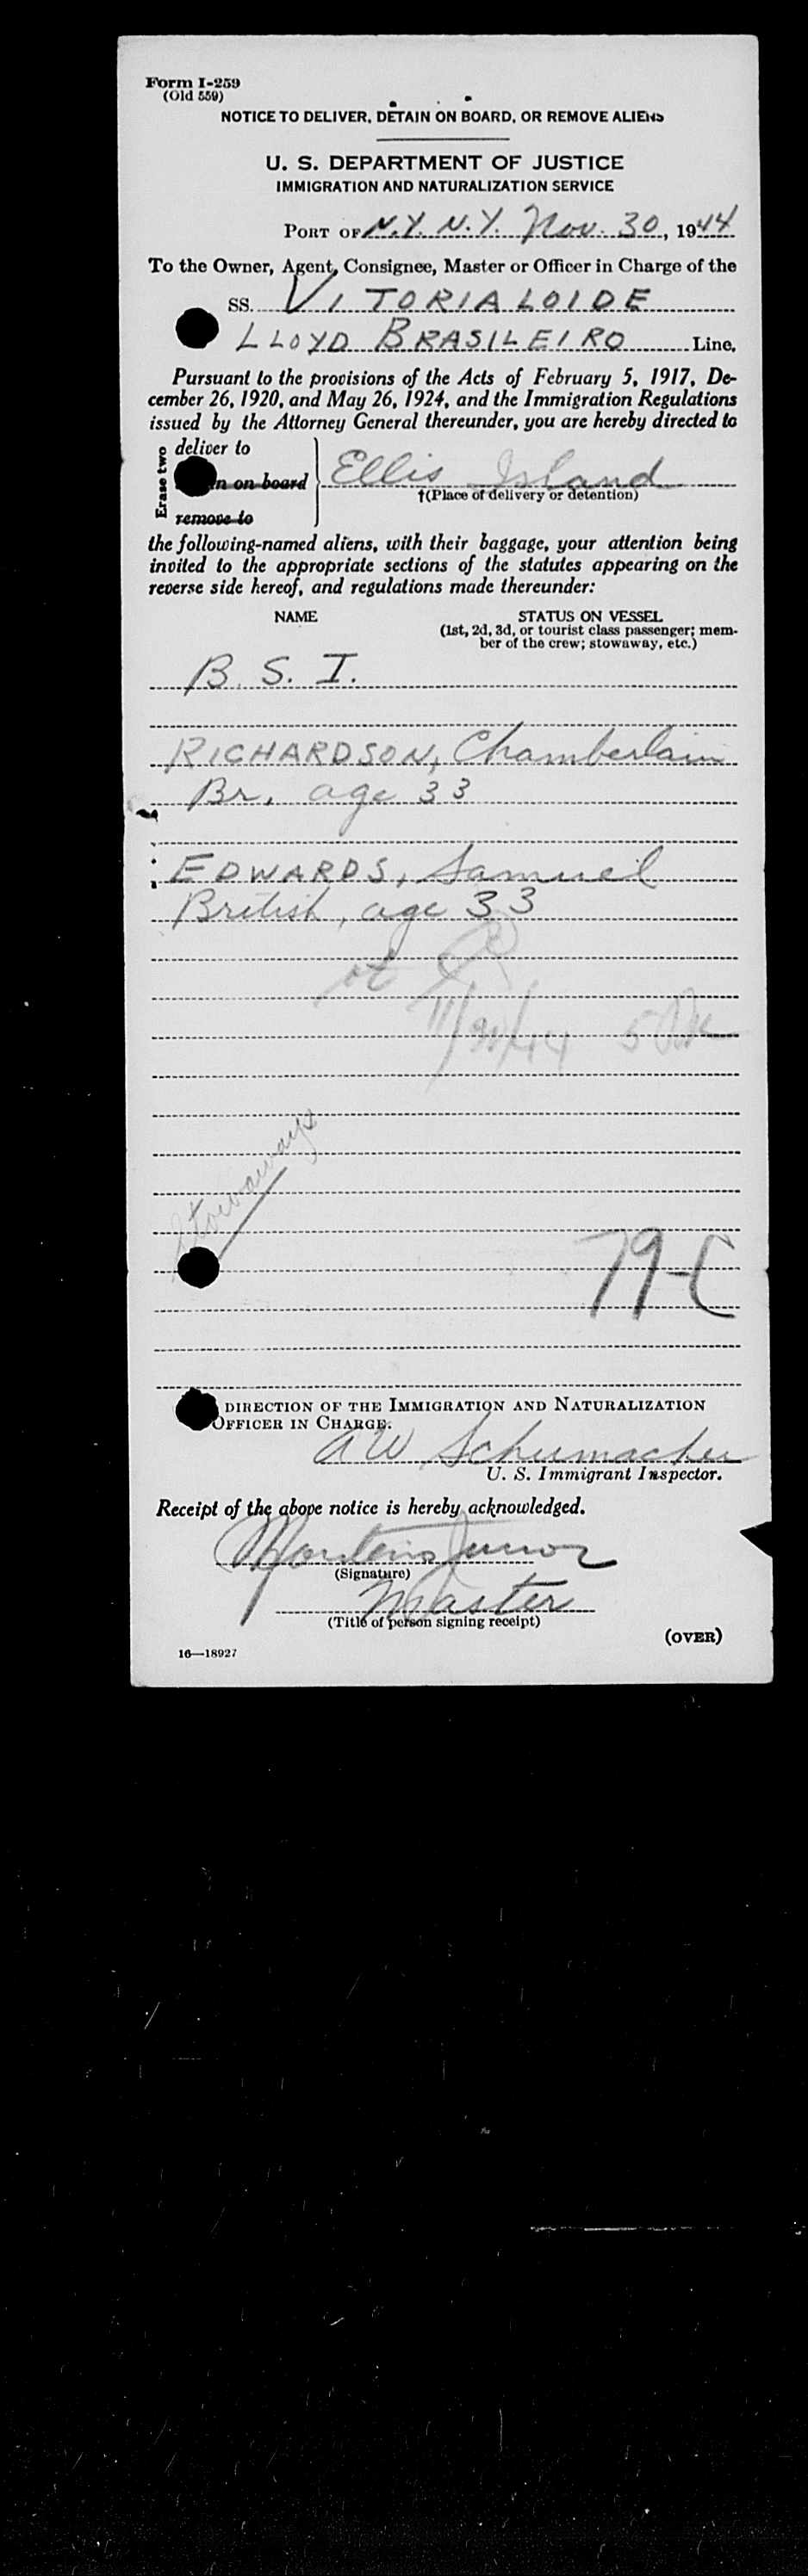 Form I-259
(Old 559)
NOTICE TO DELIVER, DETAIN ON BOARD, OR REMOVE ALIENS
U. S. DEPARTMENT OF JUSTICE
IMMIGRATION AND NATURALIZATION SERVICE
PORT OF N.Y. N.Y. Nov. 30, 1944
To the Owner, Agent, Consignee, Master or Officer in Charge of the
SS. VITORIALOIDE
LLOYD BRASILEIRO Line,
Pursuant to the provisions of the Acts of February 5, 1917, De-
cember 26, 1920, and May 26, 1924, and the Immigration Regulations
issued by the Attorney General thereunder, you are hereby directed to
Erase two
deliver to
n on board
remove to
Ellis Island
†(Place of delivery or detention)
the following-named aliens, with their baggage, your attention being
invited to the appropriate sections of the statutes appearing on the
reverse side hereof, and regulations made thereunder:
NAME STATUS ON VESSEL
(1st, 2d, 3d, or tourist class passenger; mem-
ber of the crew; stowaway, etc.)
B. S. I.
RICHARDSON, Chamberlain
Br. age 33
EDWARDS, Samuel
British, age 33
11/30/44
Stowaways
79-C
DIRECTION OF THE IMMIGRATION AND NATURALIZATION
OFFICER IN CHARGE.
A W Schumacher
U. S. Immigrant Inspector.
Receipt of the above notice is hereby acknowledged.
Junior
(Signature)
Master
(Title of person signing receipt)
(OVER)
16—18927